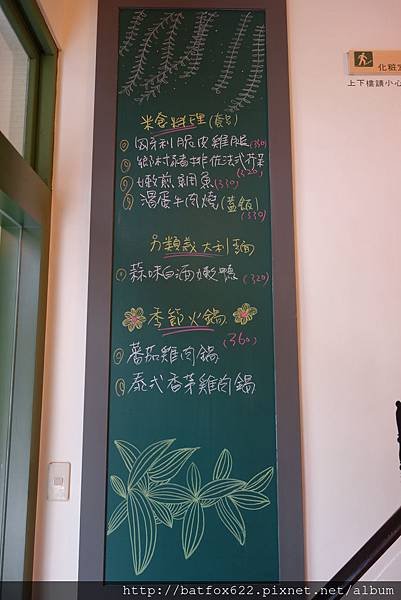 米食料理(套餐)
① 匈牙利脆皮雞腿(350)
② 鄉村豬排佐法式芥茉
(320)
③ 嫩煎鯛魚(330)
④ 溫蛋牛肉燒(蓋飯)
(330)
另類義大利麵
① 蒜味白酒嫩鴨(320)
季節火鍋
(360)
① 蕃茄雞肉鍋
② 泰式香茅雞肉鍋
化粧室
上下樓請小心
http://batfox622.pixnet.net/album